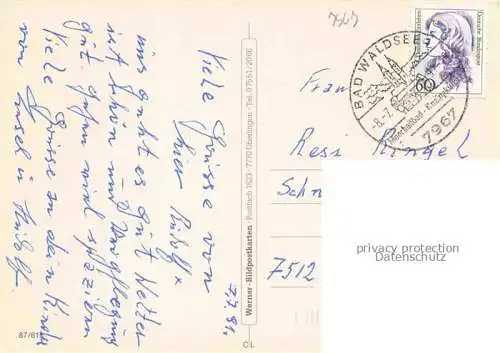 7967
7.7.91
Viele Grüsse von
hier Rudolf
uns geht es gut Wetter
ist schön und Verpflegung
gut. gehen viel spazieren
Viele Grüsse an dein Kinder
von Insel u Rudolf
87/61
Werner-Bildpostkarten · Postfach 1623 · 7770 Überlingen · Tel. 07551/2066
CL
BAD WALDSEE
-8.-7.
Moorheilbad - Kneippkurort
7967
Deutsche Bundespost
60
Frau
Resi Ringel
Schn
7512
privacy protection
Datenschutz